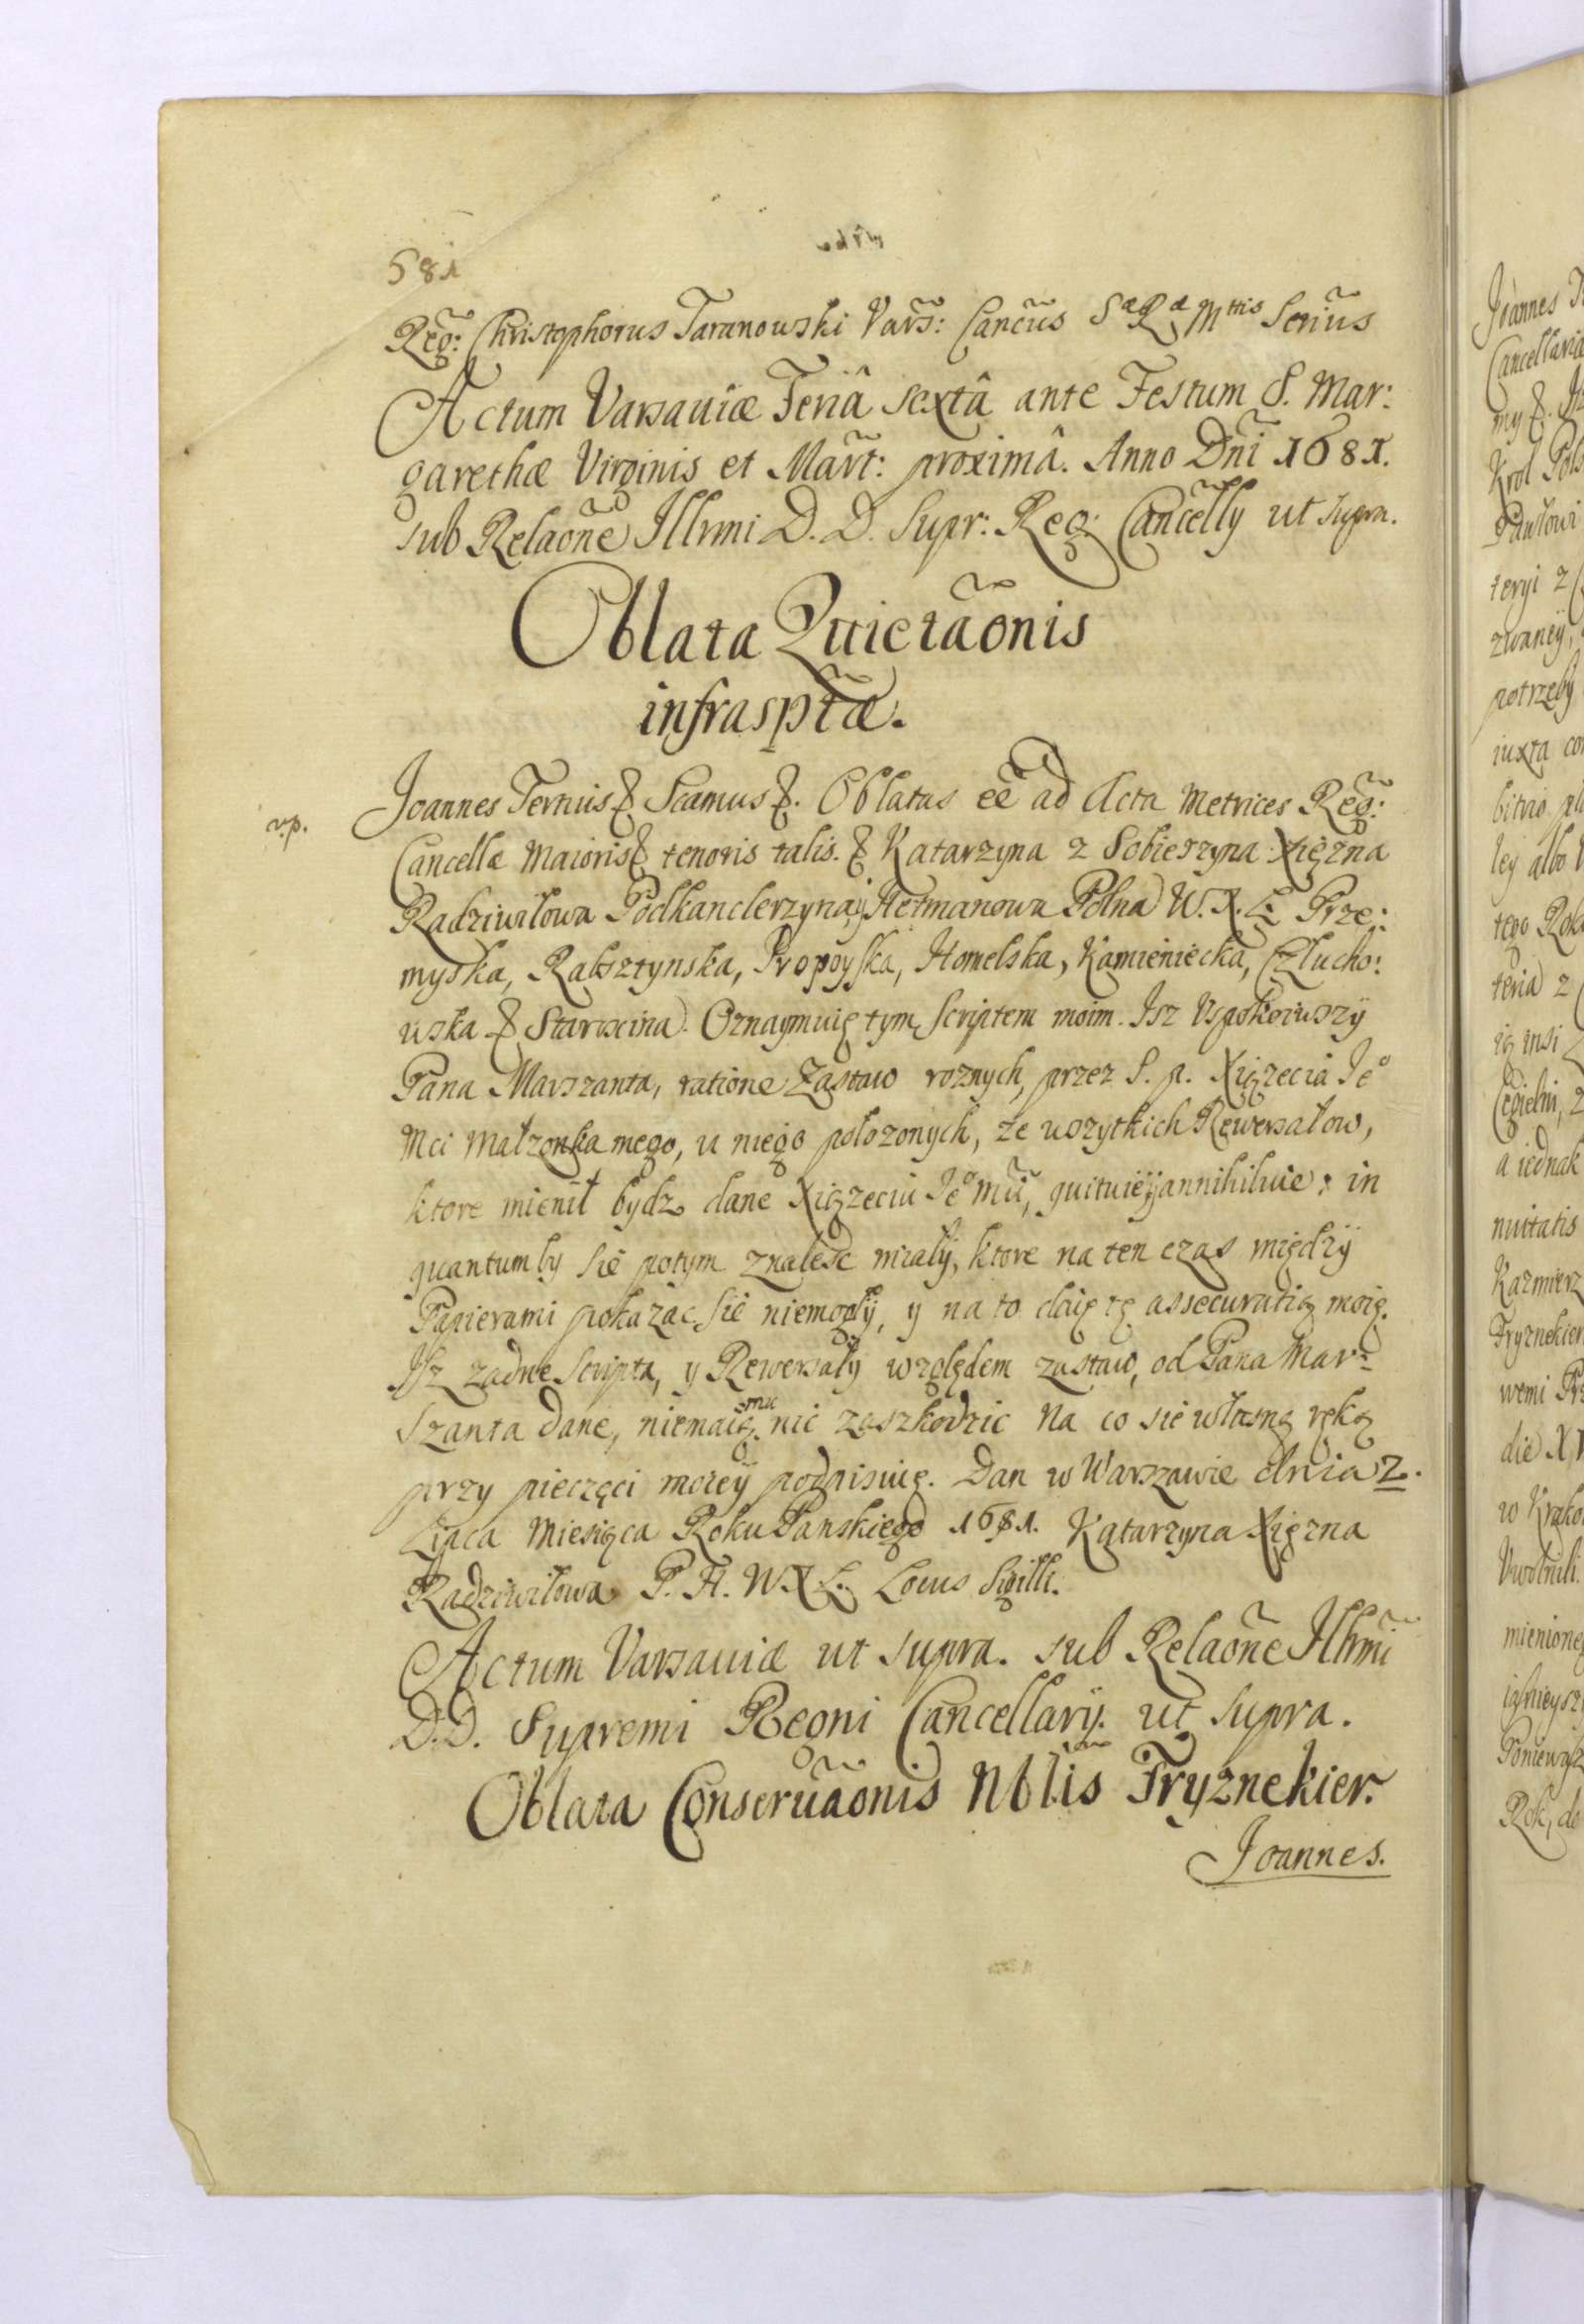 581
Reg: Christophorus Taranowski Vars: Cancus SæRæMttis Scrius
Actum Varsaviæ Feriâ sextâ ante Festum S. Mar:
garethæ Virginis et Mart: proximâ. Anno Dñi 1681.
sub Relaõne Illrmi D. D. Supr: Reg: Cancelly ut supra.
Oblata Quietaõnis
infrasptæ.
Joannes Tertius & Scamus &. Oblatas eẽ ad Acta Metrices Reg:
v.p.
Cancellæ Maioris & tenoris talis. & Katarzyna z Sobieszyna Xiężna
Radziwiłowa Podkanclerzyna, y Hetmanowa Polna W. X. L. Prze:
myska, Rabsztynska, Propoyska, Homelska, Kamieniecka, Człucho:
wska & Starościna. Oznaymuię tym Scriptem moim. Isz Uspokoiwszÿ
Pana Marszanta, ratione Zastaw roznych, przez S. p. Xiążęcia Jeº
Mci Małzonka mego, u niego położonych, ze wszytkich Rewersałow,
ktore mienił bydz dane Xiążęciu Jeºmũ, quituię y annihiluię: in
quantumby się potym znaleśc miały, ktore na ten czas międzÿ
Papierami pokazac się niemogłÿ, y na to daię tę assecuratią moię.
Isz zadne Scripta, y Rewersałÿ względem zastaw, od Pana Mar:
szanta dane, niemaią mu nic zaszkodzic Na co się własną ręką
przy pieczęci moiey podpisuię. Dan w Warszawie dnia 2.
Lipca Miesiąca Roku Panskiego 1681. Katarzyna Xiężna
Radziwiłowa P. H. W. X. L. Locus Sigilli.
Actum Varsaviæ ut supra. sub Relaõne Illrmi
D.D. Supremi Regni Cancellarÿ. ut supra.
Oblata Conservaõnis Nblis Fryznekier.
Joannes.